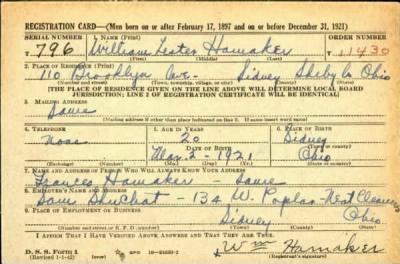 REGISTRATION CARD—(Men born on or after February 17, 1897 and on or before December 31, 1921)
SERIAL NUMBER 1. NAME (Print) ORDER NUMBER
T 796 William Lester Hamaker T 11430
(First) (Middle) (Last)
2. PLACE OF RESIDENCE (Print)
110 Brooklyn Ave. Sidney Shelby Co Ohio
(Number and street) (Town, township, village, or city) (County) (State)
[THE PLACE OF RESIDENCE GIVEN ON THE LINE ABOVE WILL DETERMINE LOCAL BOARD
JURISDICTION; LINE 2 OF REGISTRATION CERTIFICATE WILL BE IDENTICAL]
3. MAILING ADDRESS
Same
[Mailing address if other than place indicated on line 2. If same insert word same]
4. TELEPHONE 5. AGE IN YEARS 6. PLACE OF BIRTH
None 20 Sidney
DATE OF BIRTH (Town or county)
Mar. 2 - 1921 Ohio
(Exchange) (Number) (Mo.) (Day) (Yr.) (State or country)
7. NAME AND ADDRESS OF PERSON WHO WILL ALWAYS KNOW YOUR ADDRESS
Frances Hamaker - Same
8. EMPLOYER'S NAME AND ADDRESS
Same Shuchat - 134 W. Poplar - Neat Cleaners
9. PLACE OF EMPLOYMENT OR BUSINESS
Sidney Ohio
(Number and street or R. F. D. number) (Town) (County) (State)
I AFFIRM THAT I HAVE VERIFIED ABOVE ANSWERS AND THAT THEY ARE TRUE.
D. S. S. Form 1
(Revised 1-1-42) GPO Wm Hamaker
(Registrant's signature)